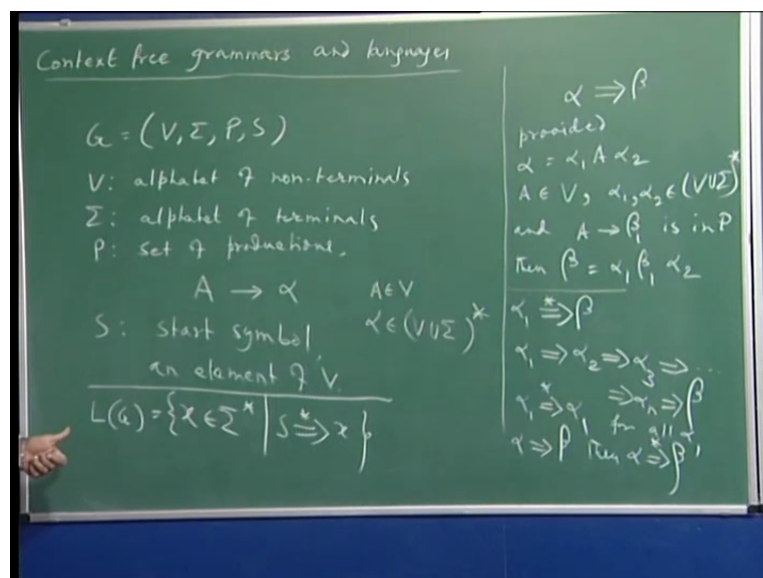 Context free grammars and languages
G = (V, Σ, P, S)
V: alphabet of non-terminals
Σ: alphabet of terminals
P: set of productions.
A → α A ∈ V
α ∈ (V ∪ Σ)*
S: start symbol
an element of V.
L(G) = {x ∈ Σ* | S ⇒* x}
α ⇒ β
provided
α = α₁ A α₂
A ∈ V, α₁, α₂ ∈ (V ∪ Σ)*
and A → β₁ is in P
Then β = α₁ β₁ α₂
α₁ ⇒* β
α₁ ⇒ α₂ ⇒ α₃ ⇒ ...
⇒ αₙ ⇒ β
α₁ ⇒* α₁ for all α₁
α ⇒ β Then α ⇒* β